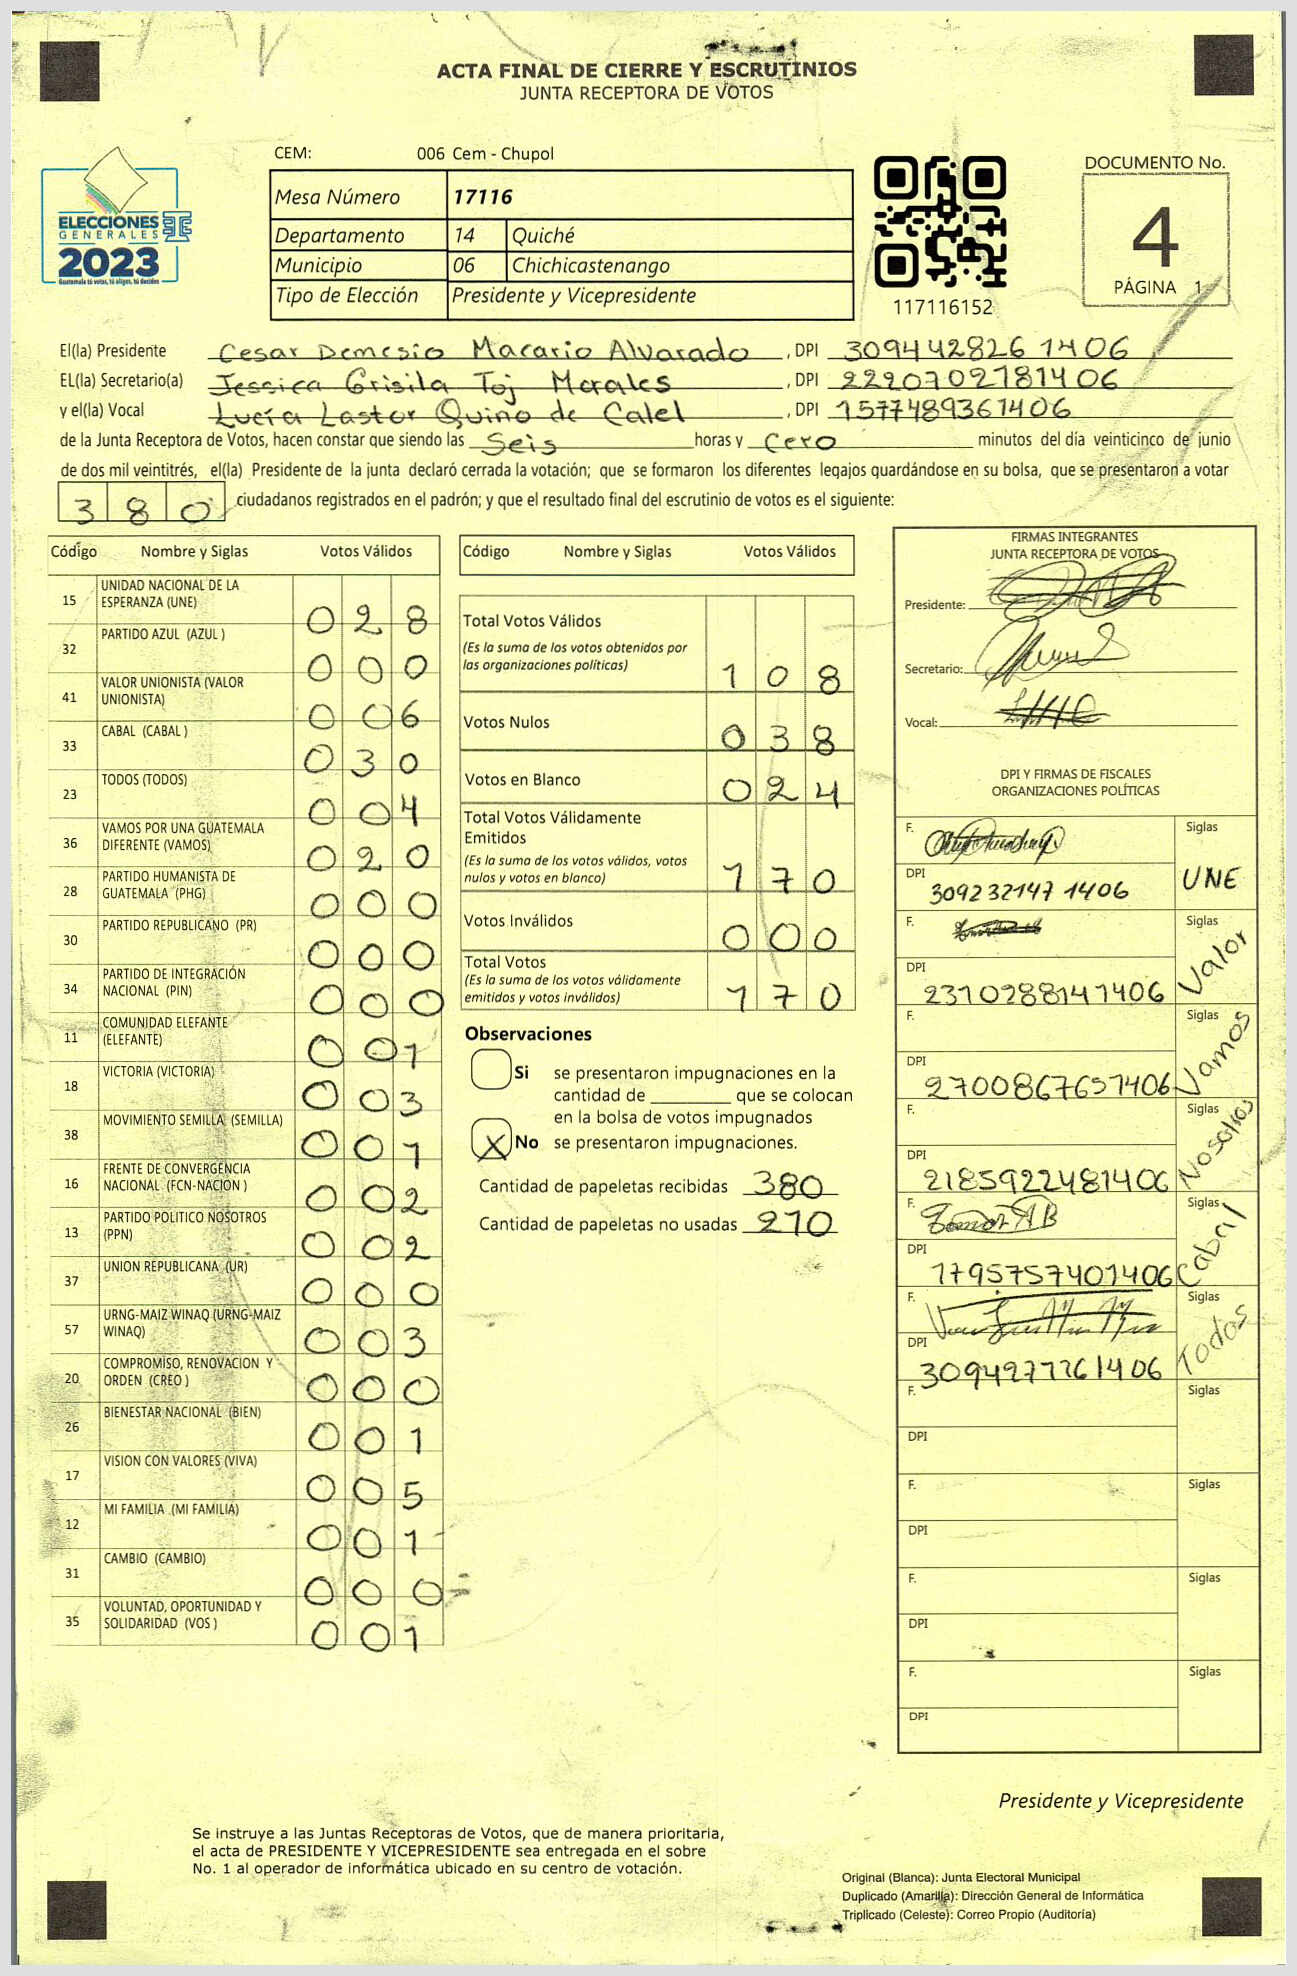 ACTA FINAL DE CIERRE Y ESCRUTINIOS
JUNTA RECEPTORA DE VOTOS
CEM: 006 Cem - Chupol
ELECCIONES
GENERALES
2023
Guatemala tú votas, tú eliges, tú decides
Mesa Número 17116
Departamento 14 Quiché
Municipio 06 Chichicastenango
Tipo de Elección Presidente y Vicepresidente
117116152
DOCUMENTO No.
4
PÁGINA 1
El(la) Presidente Cesar Demesio Macario Alvarado , DPI 309442826 1406
EL(la) Secretario(a) Jessica Grisila Toj Morales , DPI 2220702781406
y el(la) Vocal Lucía Lastor Quino de Calel , DPI 1577489361406
de la Junta Receptora de Votos, hacen constar que siendo las Seis horas y cero minutos del día veinticinco de junio
de dos mil veintitrés, el(la) Presidente de la junta declaró cerrada la votación; que se formaron los diferentes legajos guardándose en su bolsa, que se presentaron a votar
380 ciudadanos registrados en el padrón; y que el resultado final del escrutinio de votos es el siguiente:
Código Nombre y Siglas Votos Válidos
15 UNIDAD NACIONAL DE LA ESPERANZA (UNE) 0 2 8
32 PARTIDO AZUL (AZUL ) 0 0 0
41 VALOR UNIONISTA (VALOR UNIONISTA) 0 0 6
33 CABAL (CABAL ) 0 3 0
23 TODOS (TODOS) 0 0 4
36 VAMOS POR UNA GUATEMALA DIFERENTE (VAMOS) 0 2 0
28 PARTIDO HUMANISTA DE GUATEMALA (PHG) 0 0 0
30 PARTIDO REPUBLICANO (PR) 0 0 0
34 PARTIDO DE INTEGRACIÓN NACIONAL (PIN) 0 0 0
11 COMUNIDAD ELEFANTE (ELEFANTE) 0 0 1
18 VICTORIA (VICTORIA) 0 0 3
38 MOVIMIENTO SEMILLA (SEMILLA) 0 0 1
16 FRENTE DE CONVERGENCIA NACIONAL (FCN-NACION ) 0 0 2
13 PARTIDO POLITICO NOSOTROS (PPN) 0 0 2
37 UNION REPUBLICANA (UR) 0 0 0
57 URNG-MAIZ WINAQ (URNG-MAIZ WINAQ) 0 0 3
20 COMPROMISO, RENOVACION Y ORDEN (CREO ) 0 0 0
26 BIENESTAR NACIONAL (BIEN) 0 0 1
17 VISION CON VALORES (VIVA) 0 0 5
12 MI FAMILIA (MI FAMILIA) 0 0 1
31 CAMBIO (CAMBIO) 0 0 0
35 VOLUNTAD, OPORTUNIDAD Y SOLIDARIDAD (VOS ) 0 0 1
Código Nombre y Siglas Votos Válidos
Total Votos Válidos 1 0 8
(Es la suma de los votos obtenidos por
las organizaciones políticas)
Votos Nulos 0 3 8
Votos en Blanco 0 2 4
Total Votos Válidamente
Emitidos 1 7 0
(Es la suma de los votos válidos, votos
nulos y votos en blanco)
Votos Inválidos 0 0 0
Total Votos 1 7 0
(Es la suma de los votos válidamente
emitidos y votos inválidos)
Observaciones
Si se presentaron impugnaciones en la
cantidad de ________ que se colocan
en la bolsa de votos impugnados
X No se presentaron impugnaciones.
Cantidad de papeletas recibidas 380
Cantidad de papeletas no usadas 210
FIRMAS INTEGRANTES
JUNTA RECEPTORA DE VOTOS
Presidente:
Secretario:
Vocal:
DPI Y FIRMAS DE FISCALES
ORGANIZACIONES POLÍTICAS
F. Siglas
DPI 309232147 1406 UNE
F. Siglas
DPI 2310288141406 Valor
F. Siglas
DPI 2700867657406 Vamos
F. Siglas
DPI 2185922481406 Nosotros
F. Siglas
DPI 1795757401406 Cabal
F. Siglas
DPI 3094277761406 Todos
F. Siglas
DPI
F. Siglas
DPI
F. Siglas
DPI
F. Siglas
DPI
Presidente y Vicepresidente
Se instruye a las Juntas Receptoras de Votos, que de manera prioritaria,
el acta de PRESIDENTE Y VICEPRESIDENTE sea entregada en el sobre
No. 1 al operador de informática ubicado en su centro de votación.
Original (Blanca): Junta Electoral Municipal
Duplicado (Amarilla): Dirección General de Informática
Triplicado (Celeste): Correo Propio (Auditoría)